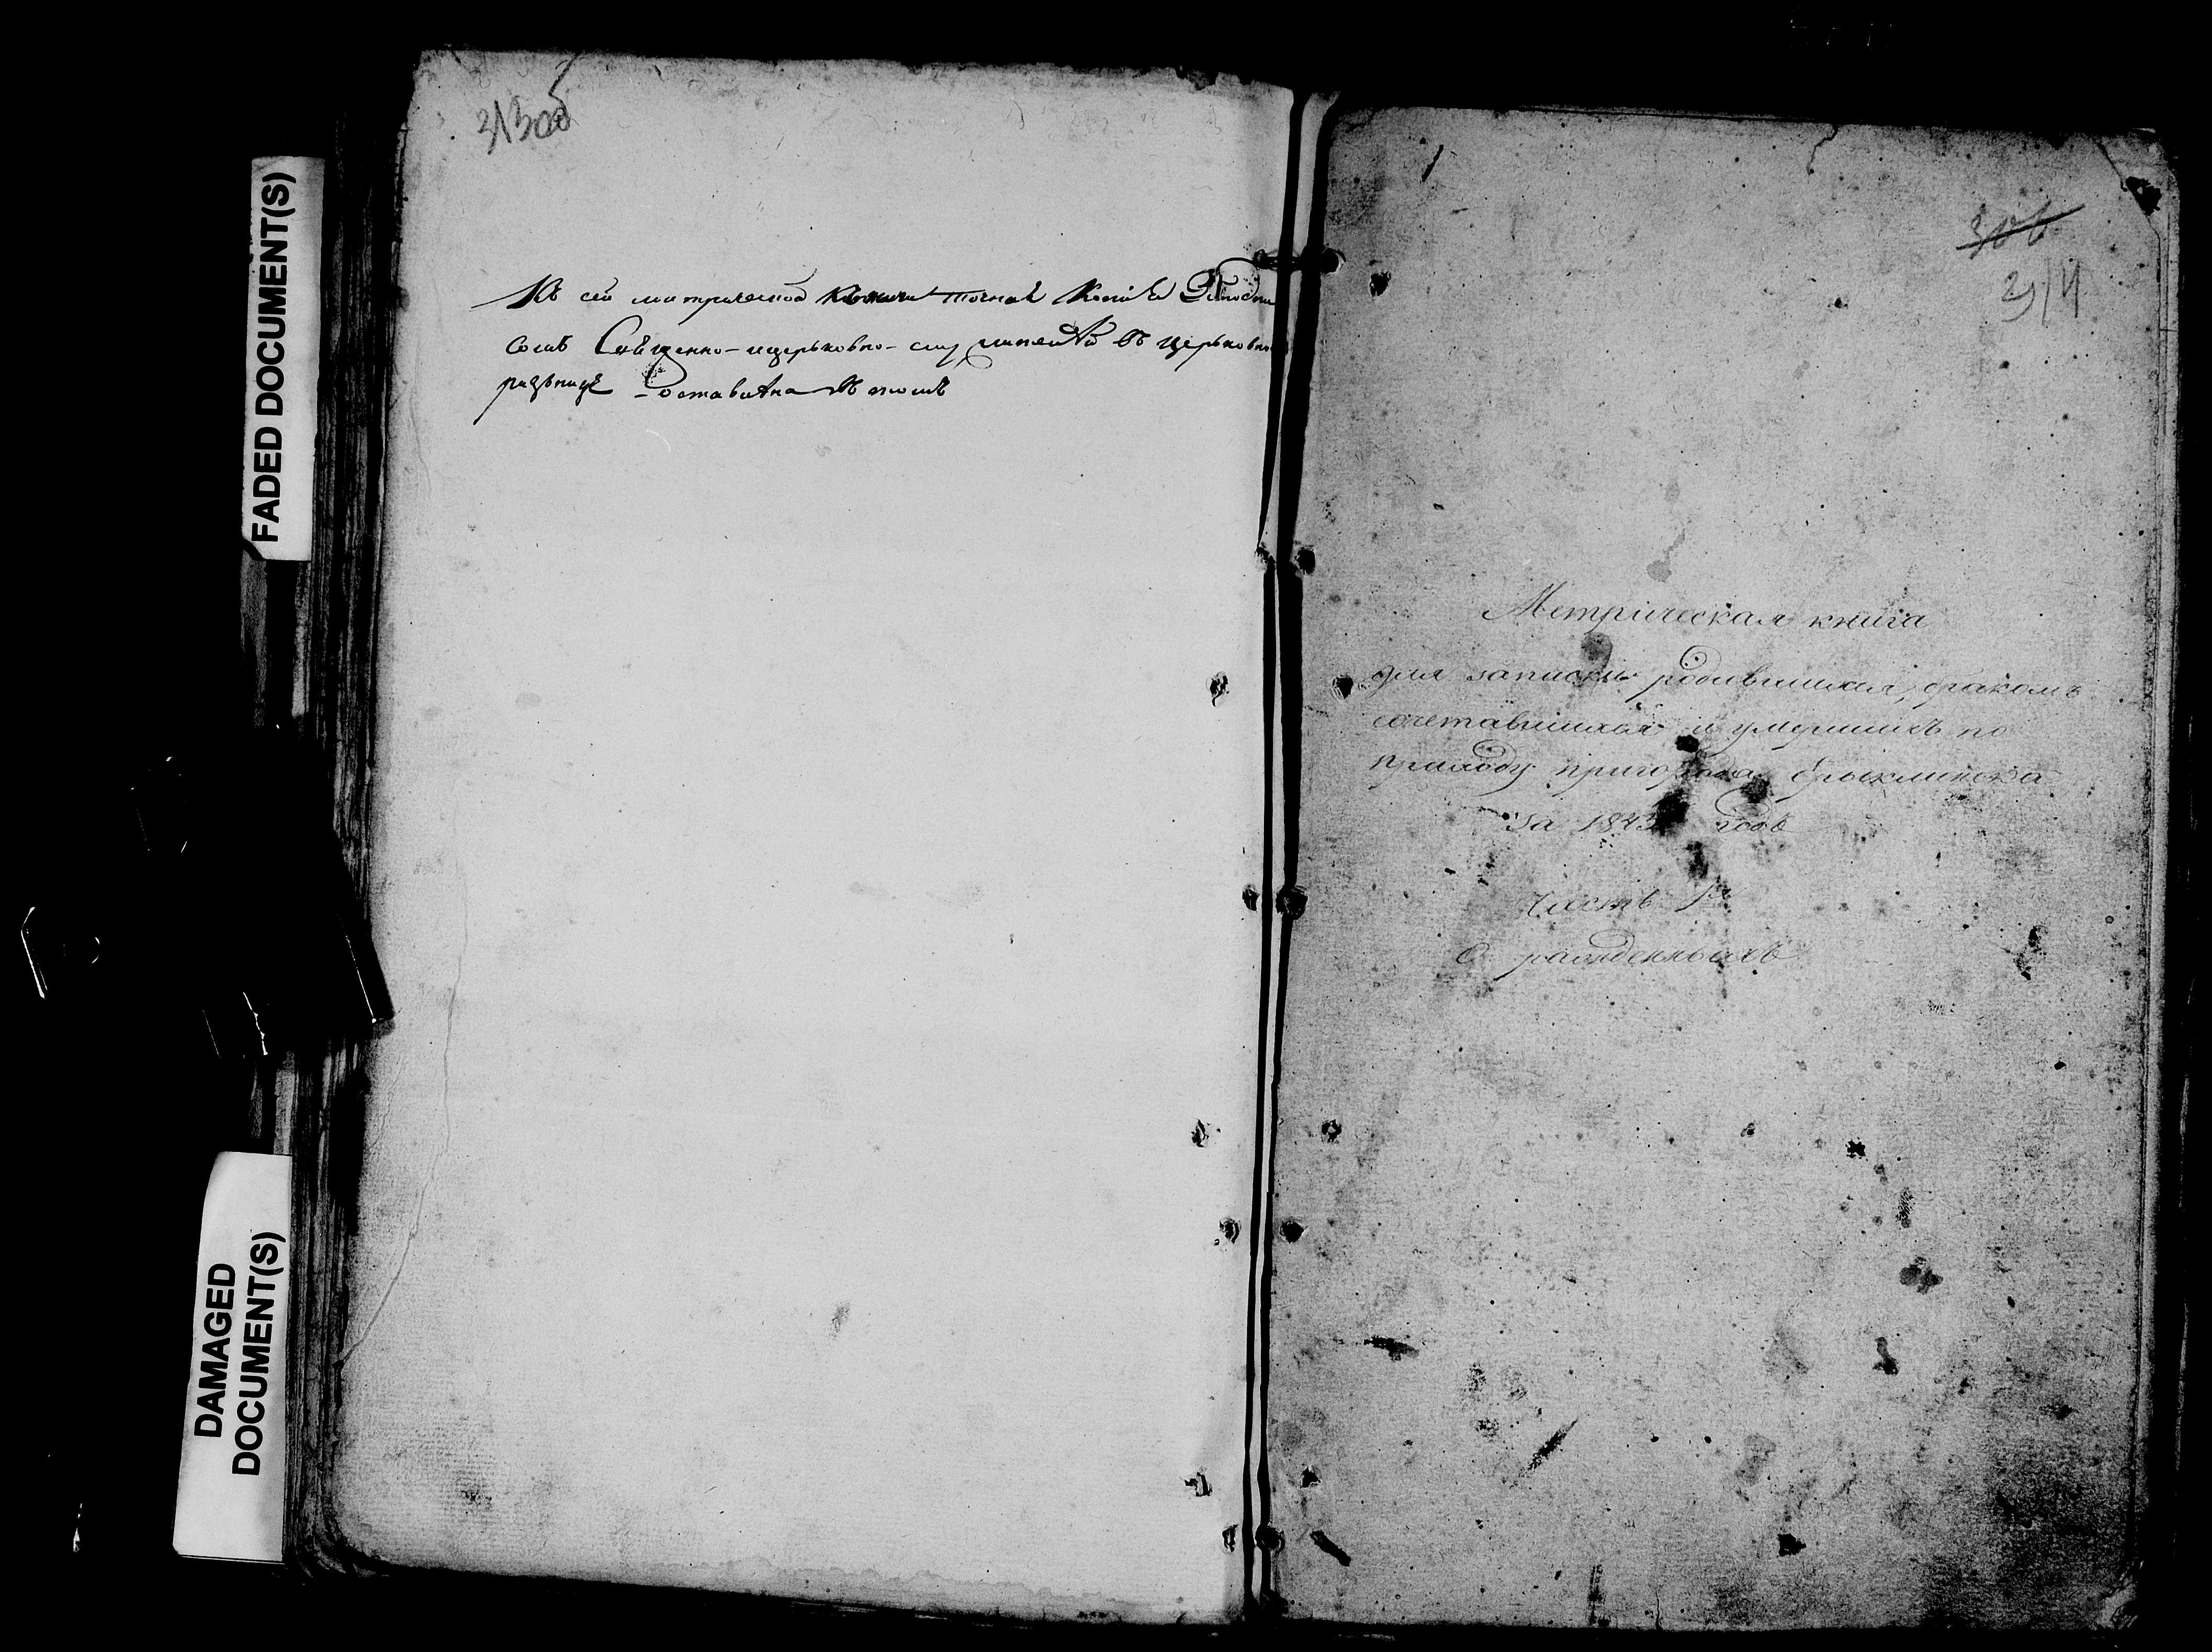 FADED DOCUMENT(S)
DAMAGED
DOCUMENT(S)
Къ сей метрической книги точная Копія За подпи
сомъ Священно-церьковно-служителей въ церьковно
ризницѣ оставлена въ томъ
306
Метрическая книга
для записки родившихся, бракомъ
сочетавшихся и умершихъ по
приходу пригорода
за 1843 годъ
Часть 1я
О рожденныхъ